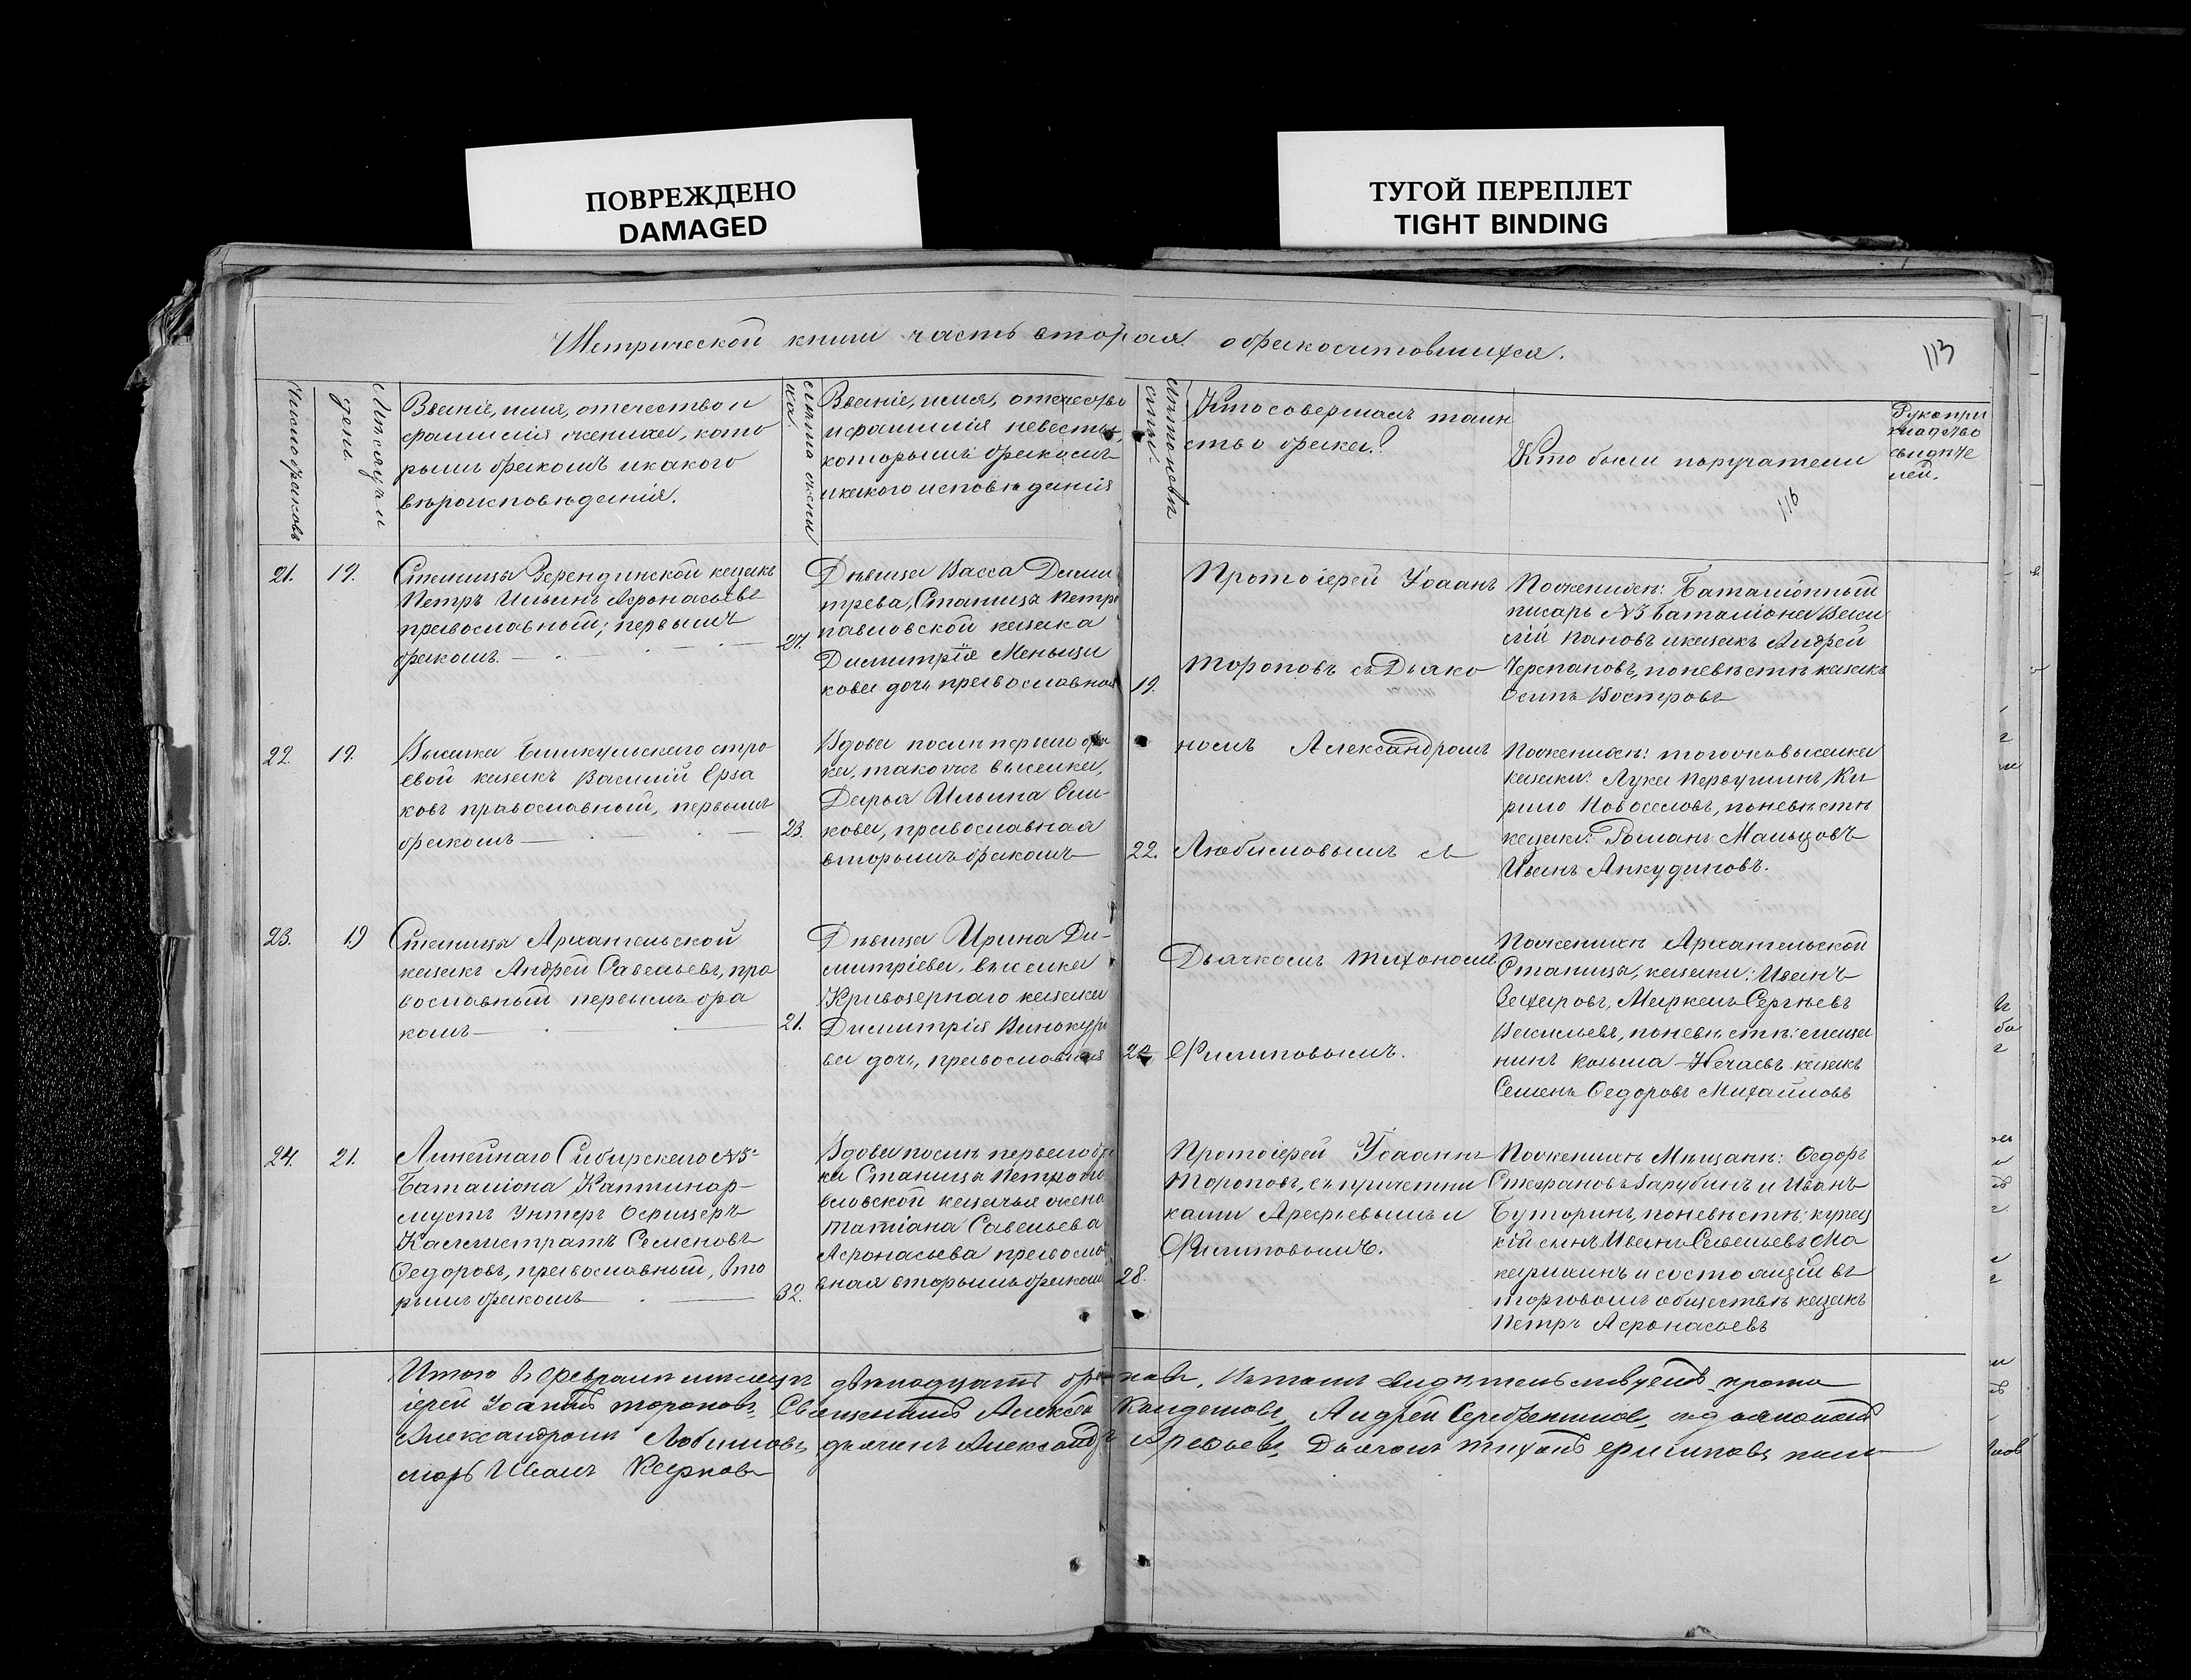 ПОВРЕЖДЕНО
DAMAGED
ТУГОЙ ПЕРЕПЛЕТ
TIGHT BINDING
Метрической книги часть вторая о бракосчитовшихся.
113
Число браковъ
Мѣсяцъ и
день.
Званіе, имя, отечество и
фамилія жениха, кото
рымъ бракомъ и какого
вѣроисповѣденія.
лѣта жени
ха.
Званіе, имя, отечество
и фамилія невѣсты,
которымъ бракомъ
и какого исповѣденія
лѣта невѣ
сты.
Кто совершалъ таин
ство брака?
Кто были поручатели
116
Рукопри
кладство
свидѣте
лей.
21.
19.
Станицы Зерендинской казакъ
Петръ Ильинъ Афонасьевъ
православный; первымъ
бракомъ.
27.
Дѣвица Васса Дими
трева, Станицы Петро
павловской казака
Димитрія Меньщи
кова дочь православная
19.
Протоіерей Іоаннъ
Тороповъ съ Дьяко
номъ Александромъ
Любимовымъ съ
Дьячкомъ Тихономъ
Филиповымъ.
По женихѣ: Баталіонный
писарь №3 баталіона Васи
лій Пановъ и казакъ Андрей
Черепановъ, по невѣстѣ казакъ
Осипъ Востровъ
22.
19.
Выселка Бишкульскаго стро
евой казакъ Василій Ерза
ковъ православный, первымъ
бракомъ
23.
Вдова послѣ перваго бра
ка, такожъ выселка,
Дарья Ильина Сми
кова, православная
вторымъ бракомъ
22.
По женихѣ: тогожъ выселка
казаки: Лука Первушинъ, Ки
рило Новоселовъ, по невѣстѣ
казаки: Романъ Мальцовъ
Иванъ Анкудиновъ.
23.
19
Станицы Архангельской
казакъ Андрей Савельевъ, пра
вославный первымъ бра
комъ
21.
Дѣвица Ирина Ди-
митріева, выселка
Кривозернаго казака
Димитрія Винокуро
ва дочь, православная
22
По женихѣ Архангельской
Станицы, казаки: Иванъ
Захаровъ, Маркелъ Сергѣевъ
Васильевъ, по невѣстѣ: мѣща
нинъ Козьма Нечаевъ казакъ
Семенъ Федоровъ Михайловъ
24.
21.
Линейнаго Сибирскаго №5
Баталіона Каптинар-
мустъ Унтеръ Офицеръ
Каллистратъ Семеновъ
Федоровъ, православный, вто
рымъ бракомъ
32.
Вдова послѣ перваго бра
ка Станицы Петропа
вловской казачья жена
Татіана Савельева
Афонасьева правосла
вная вторымъ бракомъ
28.
Протоіерей Іоаннъ
Тороповъ, съ причетни
ками Арефьевымъ и
Филиповымъ.
По женихѣ Мѣщанѣ: Федоръ
Стефановъ Зарубинъ и Иванъ
Буторинъ, по невѣстѣ: купец
кій сынъ Иванъ Савельевъ Ма
карихинъ и состоящій въ
торговомъ обществѣ казакъ
Петръ Афонасьевъ
Итого въ Февралѣ мѣсяцѣ двенадцать браковъ, въ томъ свидѣтельствуетъ прото
іерей Іоаннъ Тороповъ, Священникъ Алексѣй Кандешовъ Андрей Серебренниковъ, съ дьякономъ
Александромъ Любимовъ, дьячекъ Александръ Арефьевъ, Дьячокъ Тихонъ Филиповъ поно
марь Иванъ Карповъ